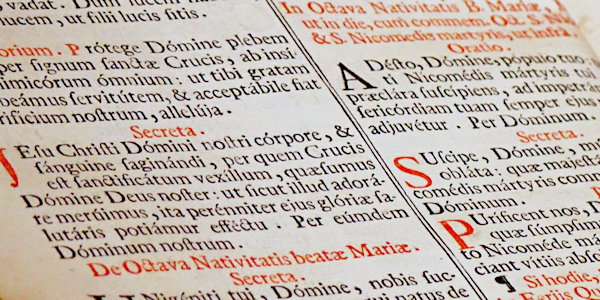 vadat. Dum lucem habetis, credite in
lucem, ut filii lucis sitis.
orium. Prótege Dómine plebem
per signum sanctæ Crucis, ab insí-
imicórum ómnium: ut tibi gratam
beámus servitútem, & acceptábile fiat
rificium nostrum, allelúja.
Secreta.
JEsu Christi Dómini nostri córpore, &
sánguine saginándi, per quem Crucis
est sanctificátum vexíllum, quæsumus
Dómine Deus noster: ut sicut illud adorá-
re merúimus, ita perénniter ejus glóriæ sa-
lutáris potiámur efféctu. Per eúmdem
Dóminum nostrum.
De Octava Nativitatis beatæ Mariæ.
Secreta.
Unigéniti tui, Dómine, nobis suc-
In Octava Nativitatis B. Mariæ
ut in die, cum commem. Oct. S. N
& S. Nicomedis martyris, ut infra.
Oratio.
ADésto, Dómine, pópulo tuo
ti Nicomédis mártyris tui
præclára suscípiens, ad impetrán
sericórdiam tuam semper ejus
adjuvétur. Per Dóminum.
Secreta.
SUscipe, Dómine, mú
obláta: quæ majestá
comédis mártyris comm
Dóminum.
PUríficent nos, D
quæ súmpsim
to Nicoméde má
ciant vítiis absol
¶ Si hodie,
Mariæ